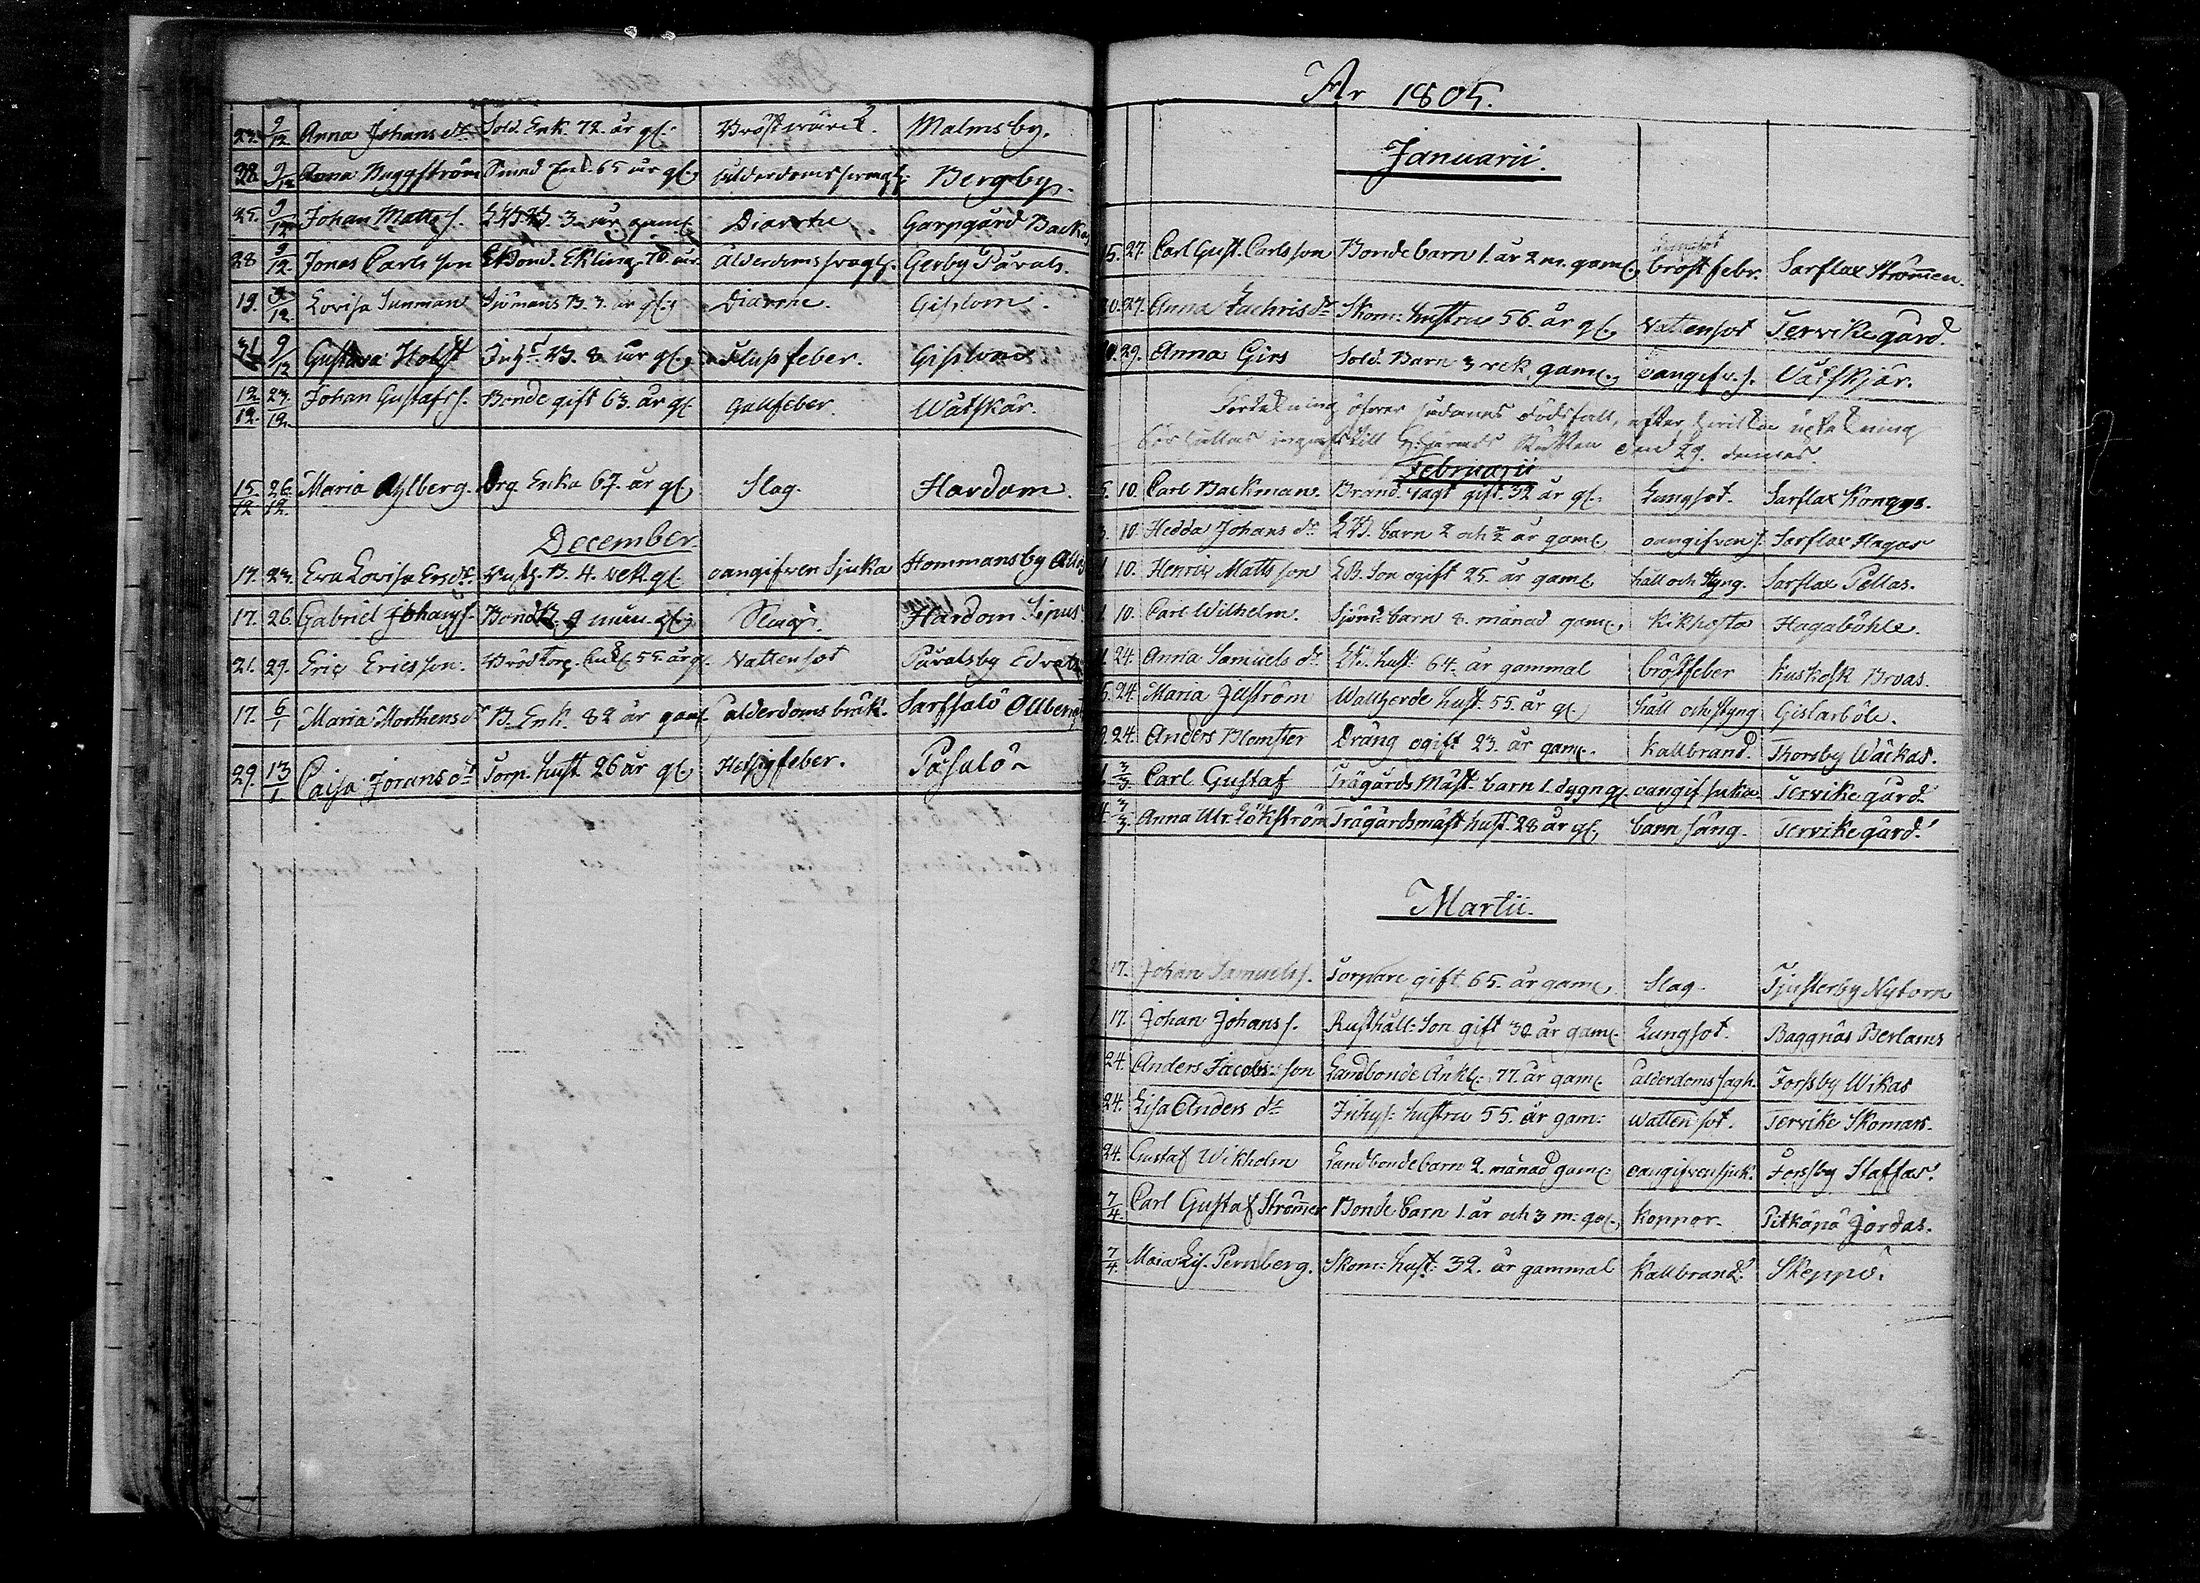 23. 9/12 Anna Johans dr Sold. Enk. 72. år gl. Bröstwärck. Malmsby.
28. 9/12 Anna Buggström Smed Enk. 65 år gl. ålderdomssvagh. Bergby.
25. 9/12 Johan Matts s. 3 år gamL Diarrhe Garpgård Backas
28 9/12. Jonas Carlsson 70 år ålderdoms svagh. Gerby Påvals.
19. 9/12 Lovisa Sunman Sjömans B. 3. år gl. Diarrhe. Gislom.
31 9/12 Gustava Holst Inhs B. 8 år gl. Flussfeber. Gislom
12/12. 23/12. Johan Gustafs s. Bonde gift 63. år gl. Gallfeber. Wåtskär.
15/12 26/12. Maria Ahlberg. Enka 67. år gl. Slag. Hardom.
December.
17. 23. Eva Lovisa Ersdr B. 4. vek gl. oangifven Sjuka Hommansby
17. 26. Gabriel Johans s. Bond B. 9 mån. gl. Slag. Hardom Sipus
21. 29. Eric Ericsson. 55. år gl. Vattensot Påvalsby Edvals
17. 6/1 Maria Morthens dr B. Enk. 82 år gamL ålderdoms bräk. Sarfsalö
29. 13/1. Caisa Jörans dr Torp. hust 26 år gl. Hetsig feber. Påsalö
År 1805.
Januarii.
15. 27. Carl Gust. Carlsson Bonde barn 1. år 2 m. gamL Lungsot bröst febr. Sarflax Strömmen.
20. 27. Anna Zachris dr Skom: hustru 56. år gl. Vattensot Tervike gård.
29. Anna Girs Sold. Barn 3 vek. gamL oangifv. s. Våtskjär.
Förtekning öfwer sådanes dödsfall, efter
till den 29. dennes.
Februarii
5. 10. Carl Backman. Brand. gift. 32 år gl. Lungsot. Sarflax Konggs.
3. 10. Hedda Johans dr barn 2 och år gamL oangifven s. Sarflax Hagas
10. Henric Matts son Son ogift 25. år gamL håll och styng. Sarflax Pellas.
10. Carl Wilhelm. Sjöm. barn 8. månad gamL kikhosta Hagaböhle.
24. Anna Samuels dr hust: 64. år gammal bröstfeber Kuskosk Broas.
6. 24. Maria Jilström Wallherde hust. 55. år gl håll och styng Gislarböle.
9. 24. Anders Blomster Dräng ogift 23. år gamL. Kallbrand. Thorsby Wäckas.
1 3/3. Carl Gustaf Trägårds Mäst. barn 1. dygn gl. oangif sukia Tervike gård.
4. 3/3. Anna Ulr. Lökström Trägårdsmäst hust. 28 år gl. barn säng. Tervike gård.
Martii.
17. Johan Samuels s. Torpare gift 65. år gamL Slag. Tjusterby Nytorn
17. Johan Johans s. Rusthåll. Son gift 30. år gamL Lungsot. Baggnäs Berlams
24. Anders Jacobs: son Landbonde Änkl. 77. år gamL ålderdoms sagh. Forsby Wikas
24. Lisa Anders dr Inhys: hustru 55. år gam: Watten sot. Tervike Skomars.
24. Gustaf Wikholm Landbonde barn 2. månad gamL oangifven sjuk. Forsby Staffas.
7/4. Carl Gustaf Strömmer Bonde barn 1. år och 3 m: gaL. Koppor. Pitkäpä Jordas.
7/4. Maia Lis. Pernberg. Skom: hust: 32. år gammal Kallbrand. Skeppö.